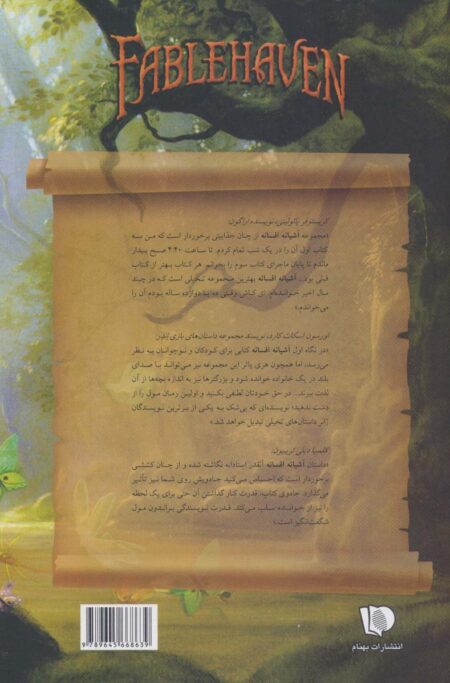 FABLEHAVEN
کریستوفر پائولینی، نویسنده اراگون:
«مجموعه آشیانه افسانه از چنان جذابیتی برخوردار است که من سه
کتاب اول آن را در یک شب تمام کردم. تا ساعت ۴:۴۰ صبح بیدار
ماندم تا پایان ماجرای کتاب سوم را بخوانم. هر کتاب بهتر از کتاب
قبلی بود... آشیانه افسانه بهترین مجموعه تخیلی است که در چند
سال اخیر خوانده‌ام. ای کاش وقتی ده یا دوازده ساله بودم آن را
می‌خواندم.»
اورسون اسکات کارد، نویسنده مجموعه داستان‌های بازی اندر:
«در نگاه اول آشیانه افسانه کتابی برای کودکان و نوجوانان به نظر
می‌رسد، اما همچون هری پاتر این مجموعه نیز می‌تواند با صدای
بلند در یک خانواده خوانده شود و بزرگترها نیز به اندازه بچه‌ها از آن
لذت ببرند. در حق خودتان لطفی بکنید و اولین رمان مول را از
دست ندهید؛ نویسنده‌ای که بی‌شک به یکی از برترین نویسندگان
ژانر داستان‌های تخیلی تبدیل خواهد شد.»
کلمبیا دیلی تریبیون:
«داستان آشیانه افسانه آنقدر استادانه نگاشته شده و از چنان کششی
برخوردار است که احساس می‌کنید جادویش روی شما نیز تأثیر
می‌گذارد. جادوی کتاب، قدرت کنار گذاشتن آن حتی برای یک لحظه
را نیز از خواننده سلب می‌کند. قدرت نویسندگی براندون مول
شگفت‌انگیز است.»
9 789645 668639
انتشارات بهنام